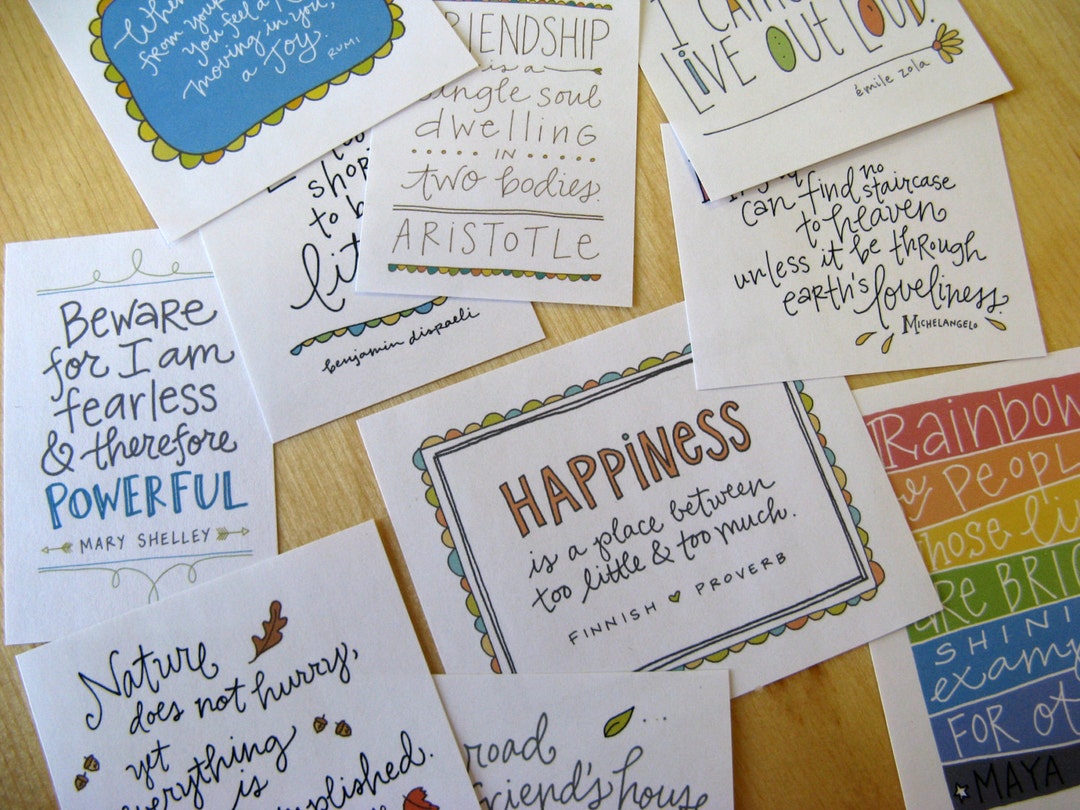 from you
you feel a
moving in you,
a Joy.
RUMI
FRIENDSHIP
is a
single soul
dwelling
IN
two bodies.
ARISTOTLE
I
LIVE OUT LOUD.
émile zola
too
shor
to b
lit
benjamin disraeli
can find no staircase
to heaven
unless it be through
earth's loveliness.
MICHELANGELO
BEWARE
for I am
fearless
& therefore
POWERFUL
MARY SHELLEY
HAPPINESS
is a place between
too little & too much.
FINNISH PROVERB
Rainbow
PEOPL
hose li
are BRIG
SHINI
examp
FOR ot
MAYA
Nature
does not hurry,
yet
everything
is
mplished.
road
riend's house